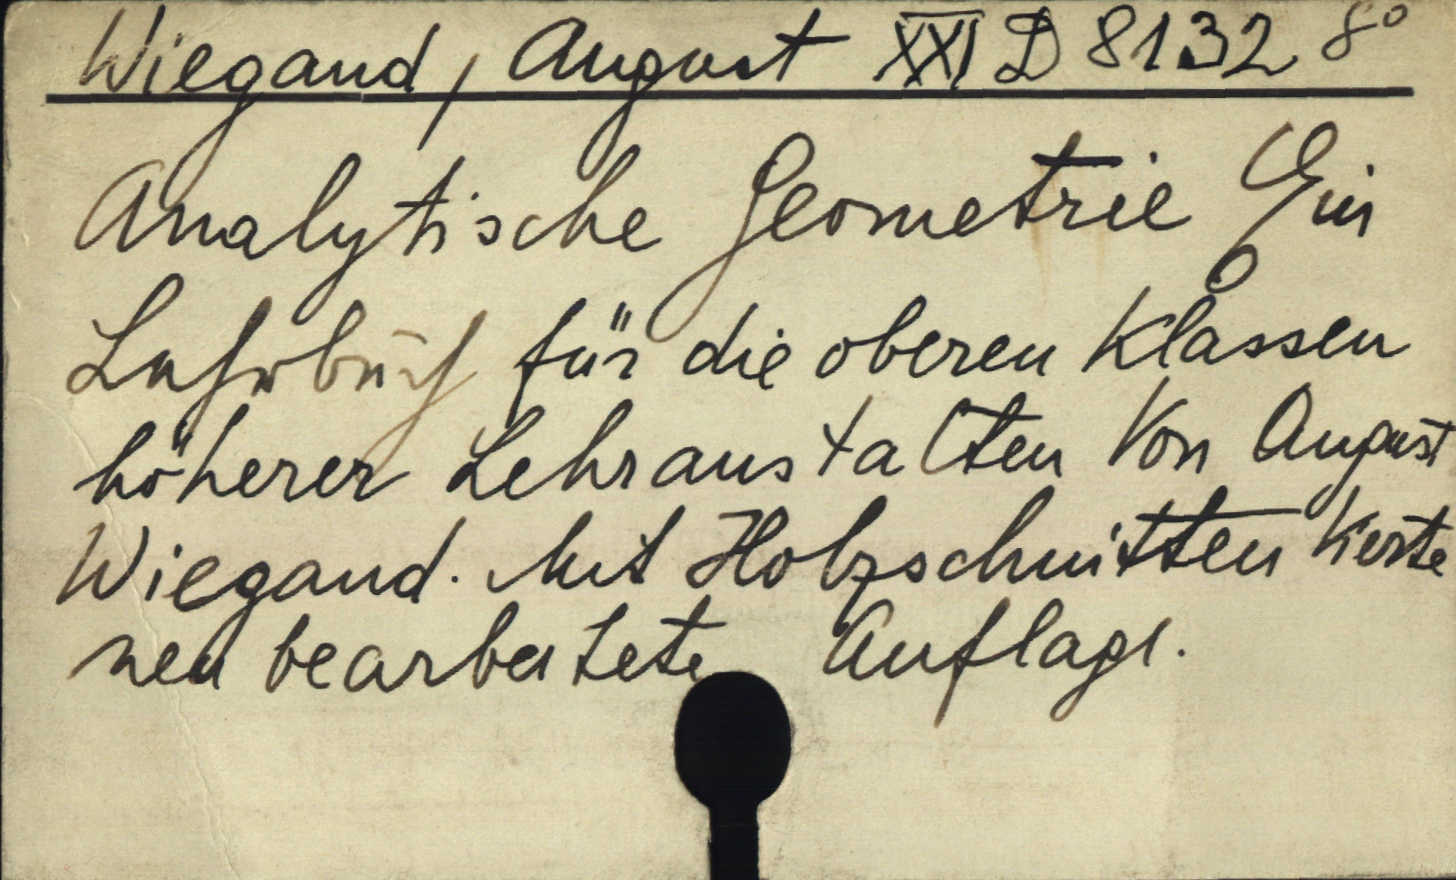 Wiegand, August XXI D 8132 8°
Analytische Geometrie Ein
Lehrbuch für die oberen Klassen
höherer Lehranstalten Von August
Wiegand. Mit Holzschnitten Vierte
neu bearbeitete Auflage.